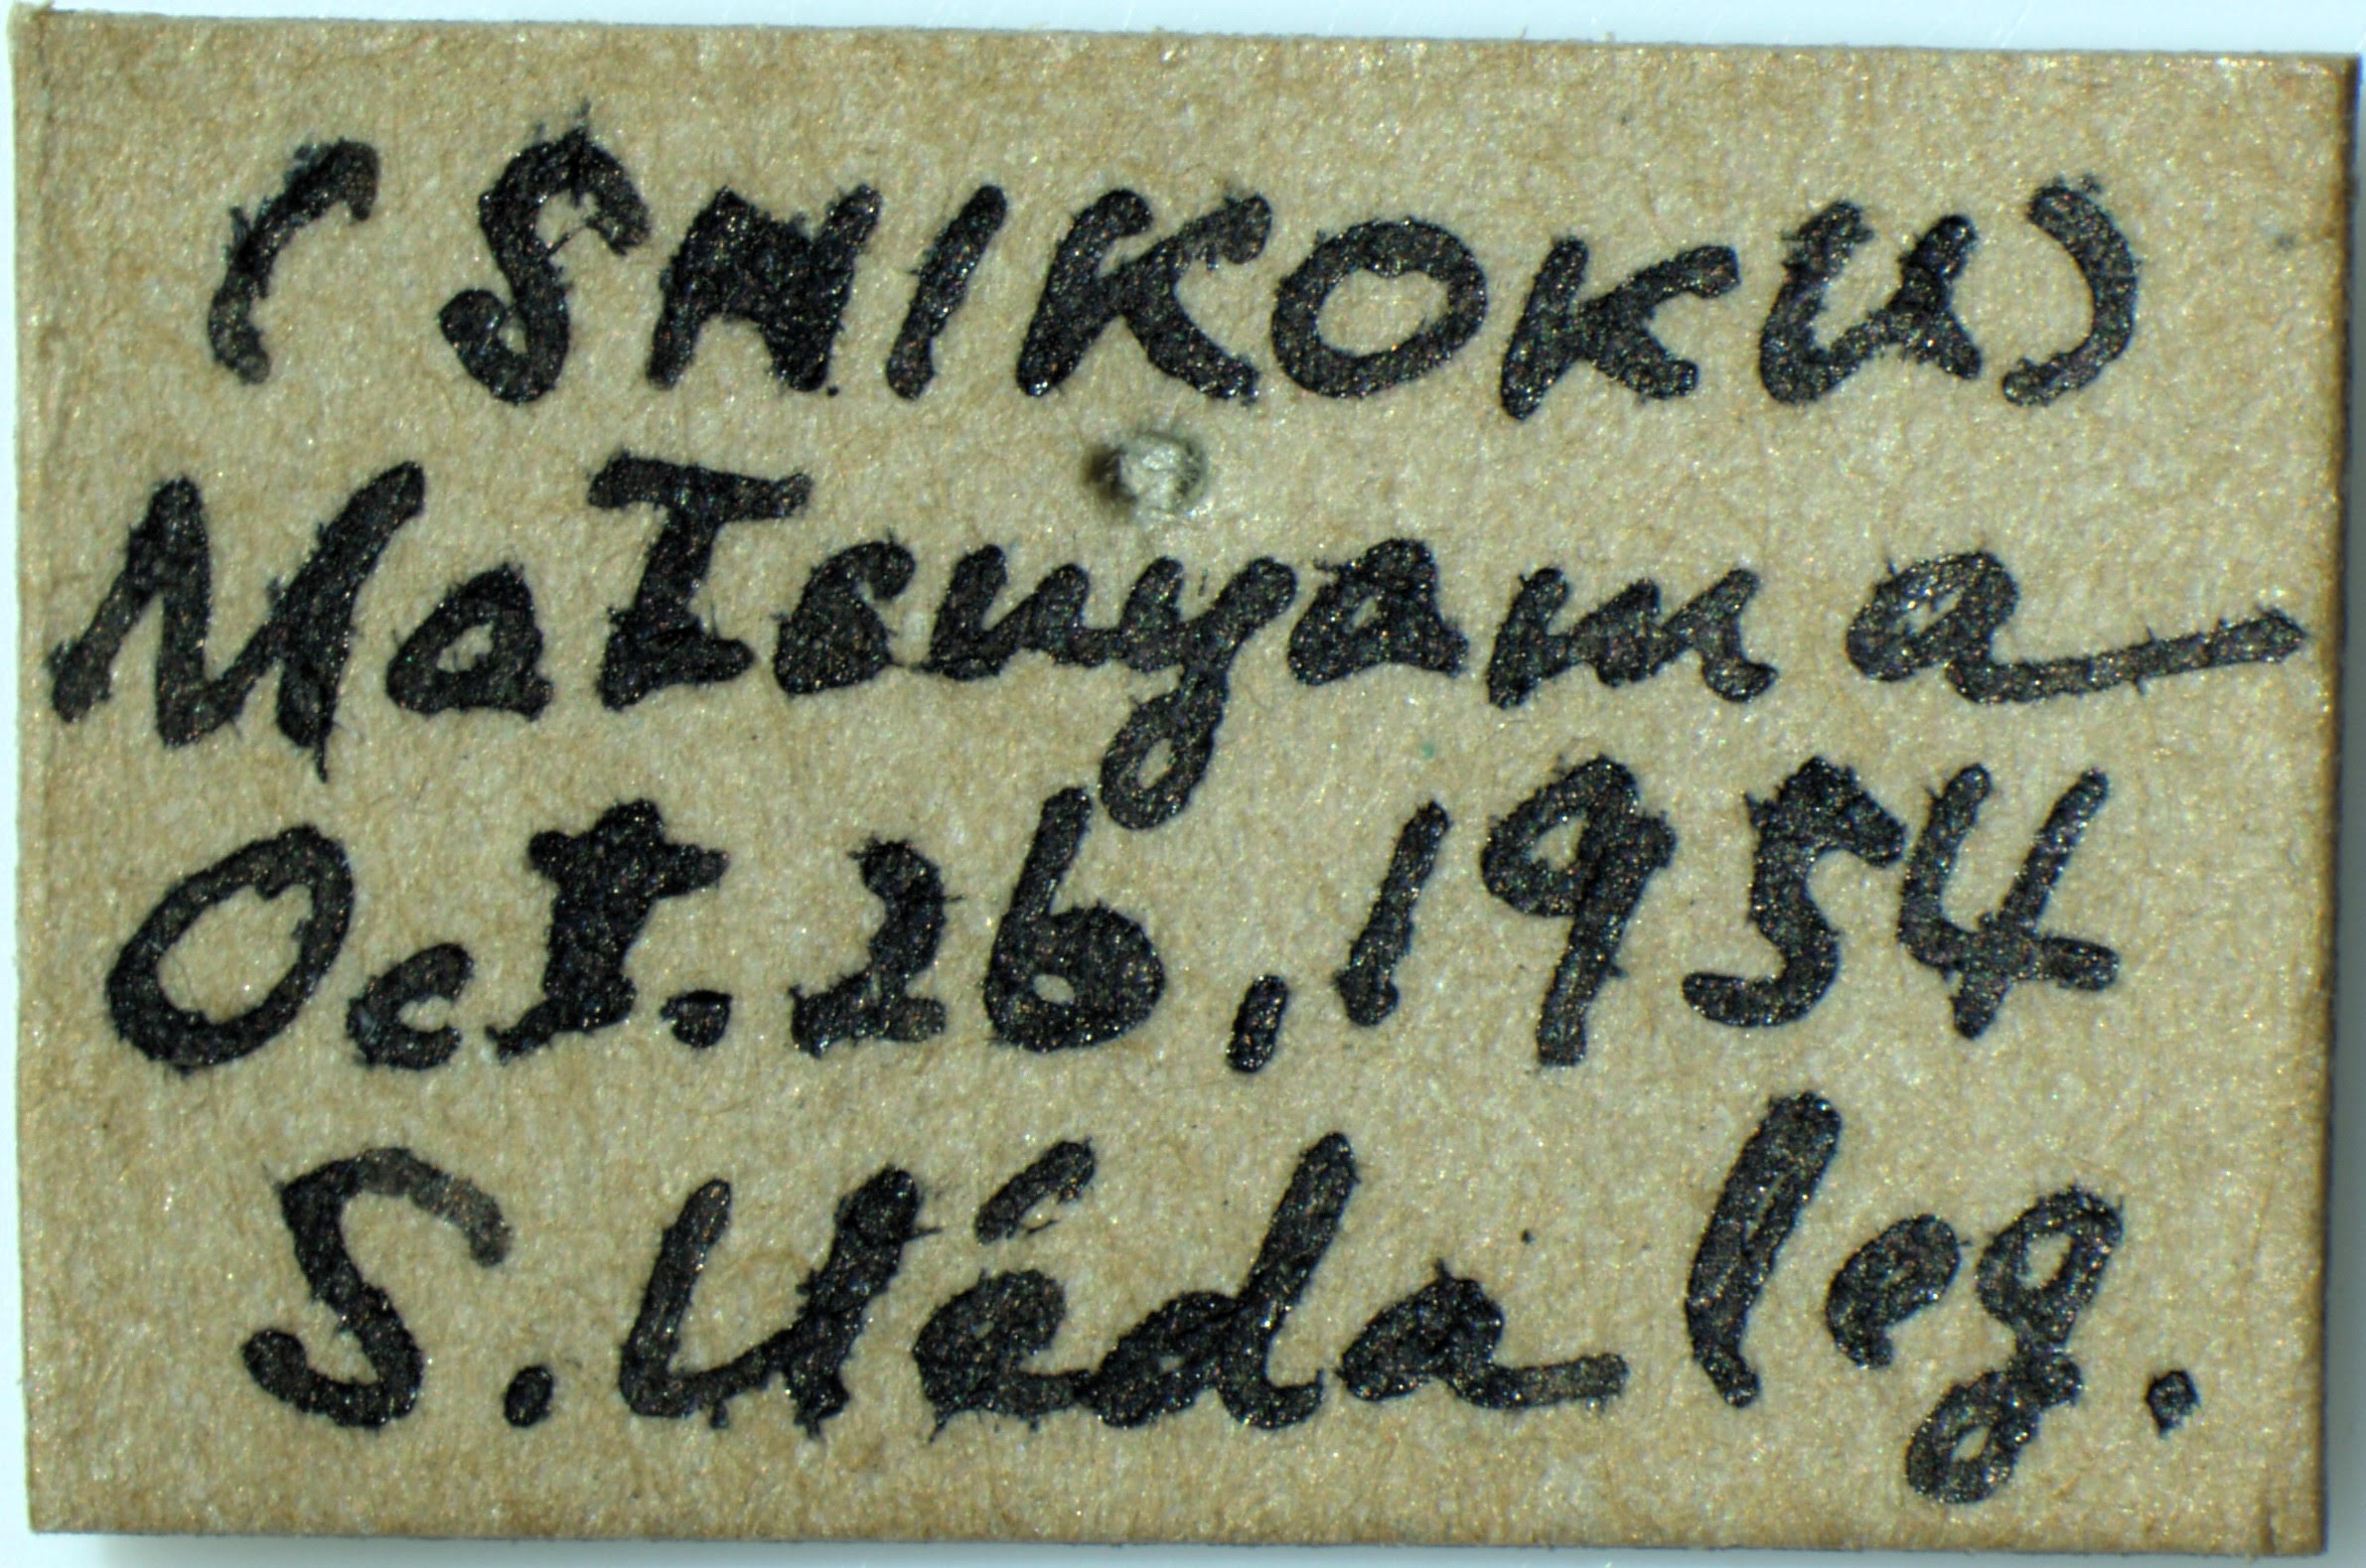 (SHIKOKU)
Matsuyama
Oct. 26, 1954
S. Uéda leg.